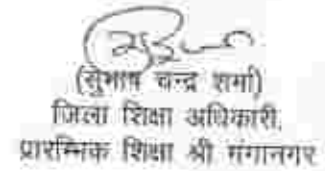 (सुभाष चन्द्र शर्मा)
जिला शिक्षा अधिकारी,
प्रारम्भिक शिक्षा श्री गंगानगर